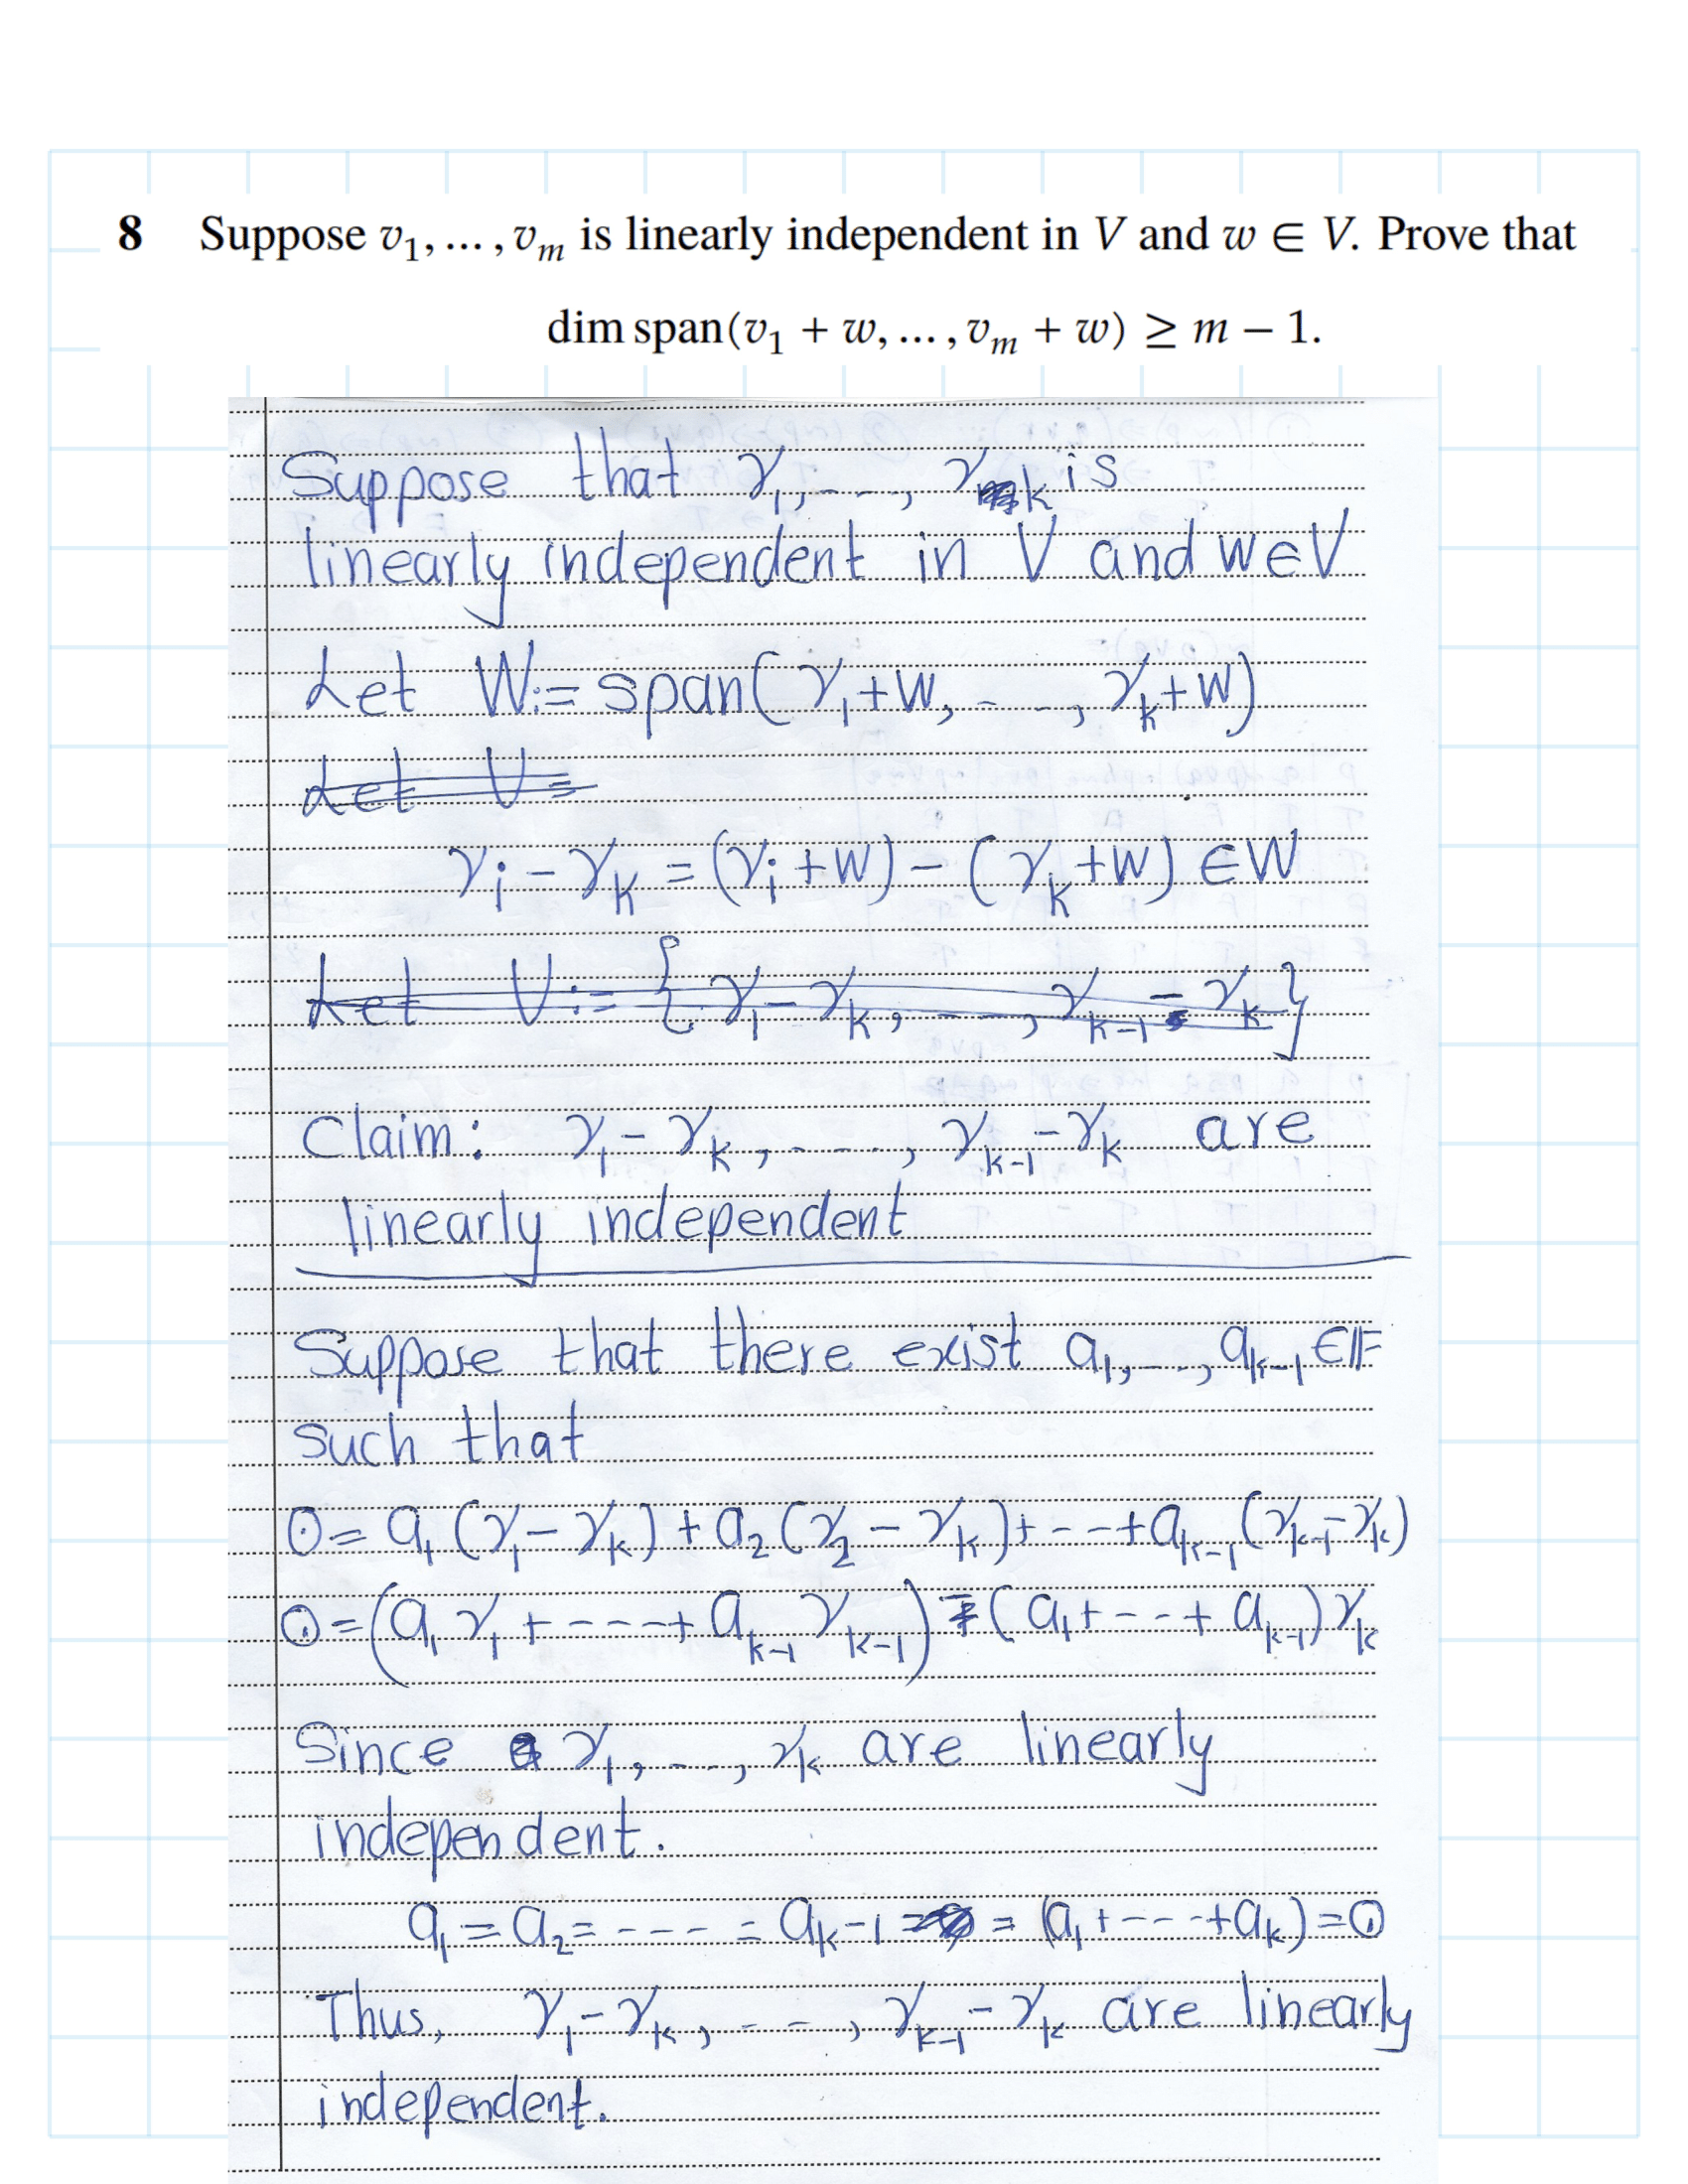 8 Suppose v₁, … , vₘ is linearly independent in V and w ∈ V. Prove that
dim span(v₁ + w, … , vₘ + w) ≥ m − 1.
Suppose that v₁, - - -, vₖ is
linearly independent in V and w∈V
Let W:= span(v₁+w, - - -, vₖ+w)
Let V=
vᵢ - vₖ = (vᵢ +w) - (vₖ+w) ∈W
Let V:= { v₁- vₖ, - - -, vₖ₋₁ - vₖ}
Claim: v₁- vₖ, - - - -, vₖ₋₁-vₖ are
linearly independent
Suppose that there exist a₁, - - -, aₖ₋₁ ∈𝔽
such that
0= a₁ (v₁- vₖ) + a₂ (v₂ - vₖ)+ - - +aₖ₋₁ (vₖ₋₁-vₖ)
0=(a₁ v₁ + - - - -+ aₖ₋₁ vₖ₋₁) - (a₁+ - - + aₖ₋₁) vₖ
Since v₁, - - -, vₖ are linearly
independent.
a₁ = a₂= - - - - = aₖ-1 = (a₁+ - - - +aₖ)=0
Thus, v₁-vₖ, - - -, vₖ₋₁- vₖ are linearly
independent.